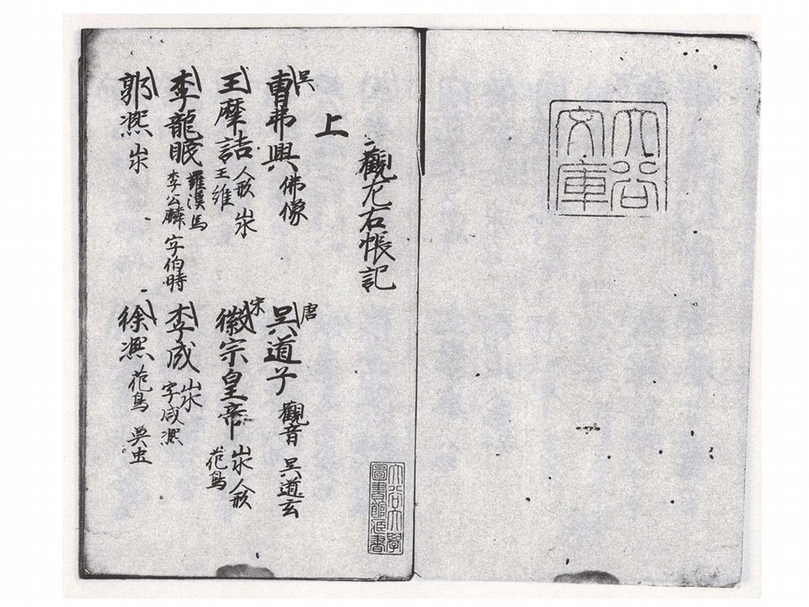 大谷
文庫
觀左右帳記
大谷大學
圖書館藏書
上
吳 曹弗興 佛像 唐 吳道子 觀音 吳道玄
王摩詰 人形 山水 王維 宋 徽宗皇帝 山水 人形 花鳥
李龍眠 羅漢 馬 李公麟 字伯時 李成 山水 字咸熙
郭熙 山水 徐熙 花鳥 魚虫